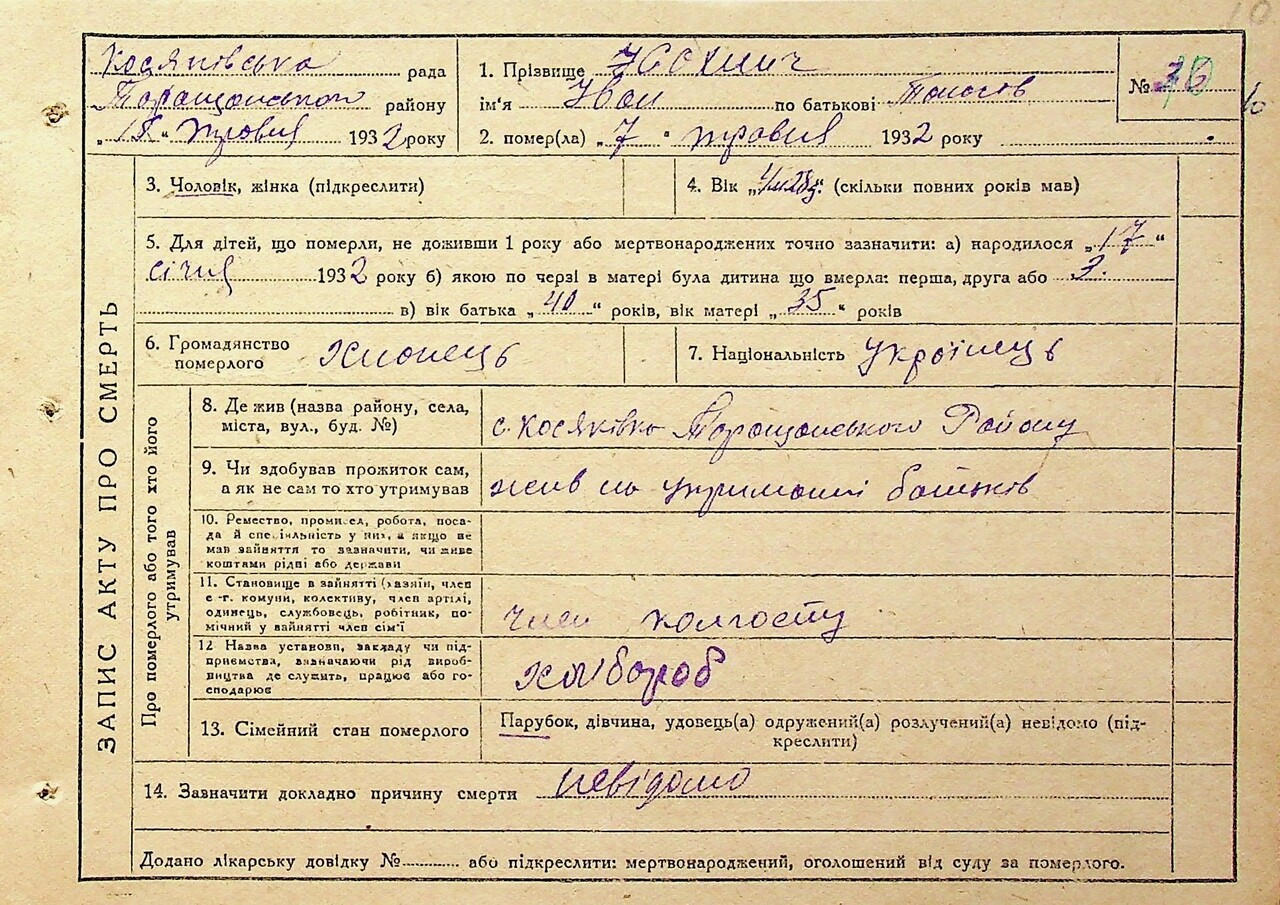 Косяківська рада
Таращанського району
„18“ травня 1932 року
1. Прізвище
ім'я Іван по батькові
2. помер(ла) „7“ травня 1932 року
№
3. Чоловік, жінка (підкреслити)
4. Вік „ “ (скільки повних років мав)
5. Для дітей, що померли, не доживши 1 року або мертвонароджених точно зазначити: а) народилося „17“
січня 1932 року б) якою по черзі в матері була дитина що вмерла: перша, друга або 3.
в) вік батька „40“ років, вік матері „35“ років
6. Громадянство
померлого хлопець
7. Національність Українець
ЗАПИС АКТУ ПРО СМЕРТЬ
Про померлого або того хто його
утримував
8. Де жив (назва району, села,
міста, вул., буд. №)
с. Косяківка Таращанського Району
9. Чи здобував прожиток сам,
а як не сам то хто утримував
жив на утриманні батьків
10. Ремество, промисел, робота, поса-
да й спеціяльність у них, а якщо не
мав зайняття то зазначити, чи живе
коштами рідні або держави
11. Становище в зайнятті (хазяїн, член
с.-г. комуни, колективу, член артілі,
одинець, службовець, робітник, по-
мічний у зайнятті член сім'ї
член колгоспу
12 Назва установи, закладу чи під-
приємства, визначаючи рід вироб-
ництва де служить, працює або го-
сподарює
хлібороб
13. Сімейний стан померлого
Парубок, дівчина, удовець(а) одружений(а) розлучений(а) невідомо (під-
креслити)
14. Зазначити докладно причину смерти невідомо
Додано лікарську довідку № або підкреслити: мертвонароджений, оголошений від суду за померлого.